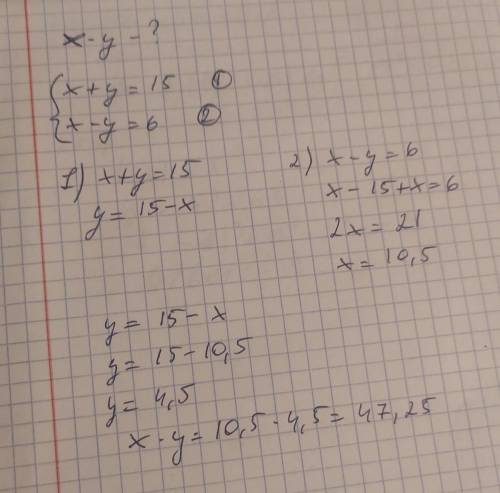 x · y - ?
x + y = 15 ①
x - y = 6 ②
1) x + y = 15
y = 15 - x
2) x - y = 6
x - 15 + x = 6
2x = 21
x = 10,5
y = 15 - x
y = 15 - 10,5
y = 4,5
x · y = 10,5 · 4,5 = 47,25